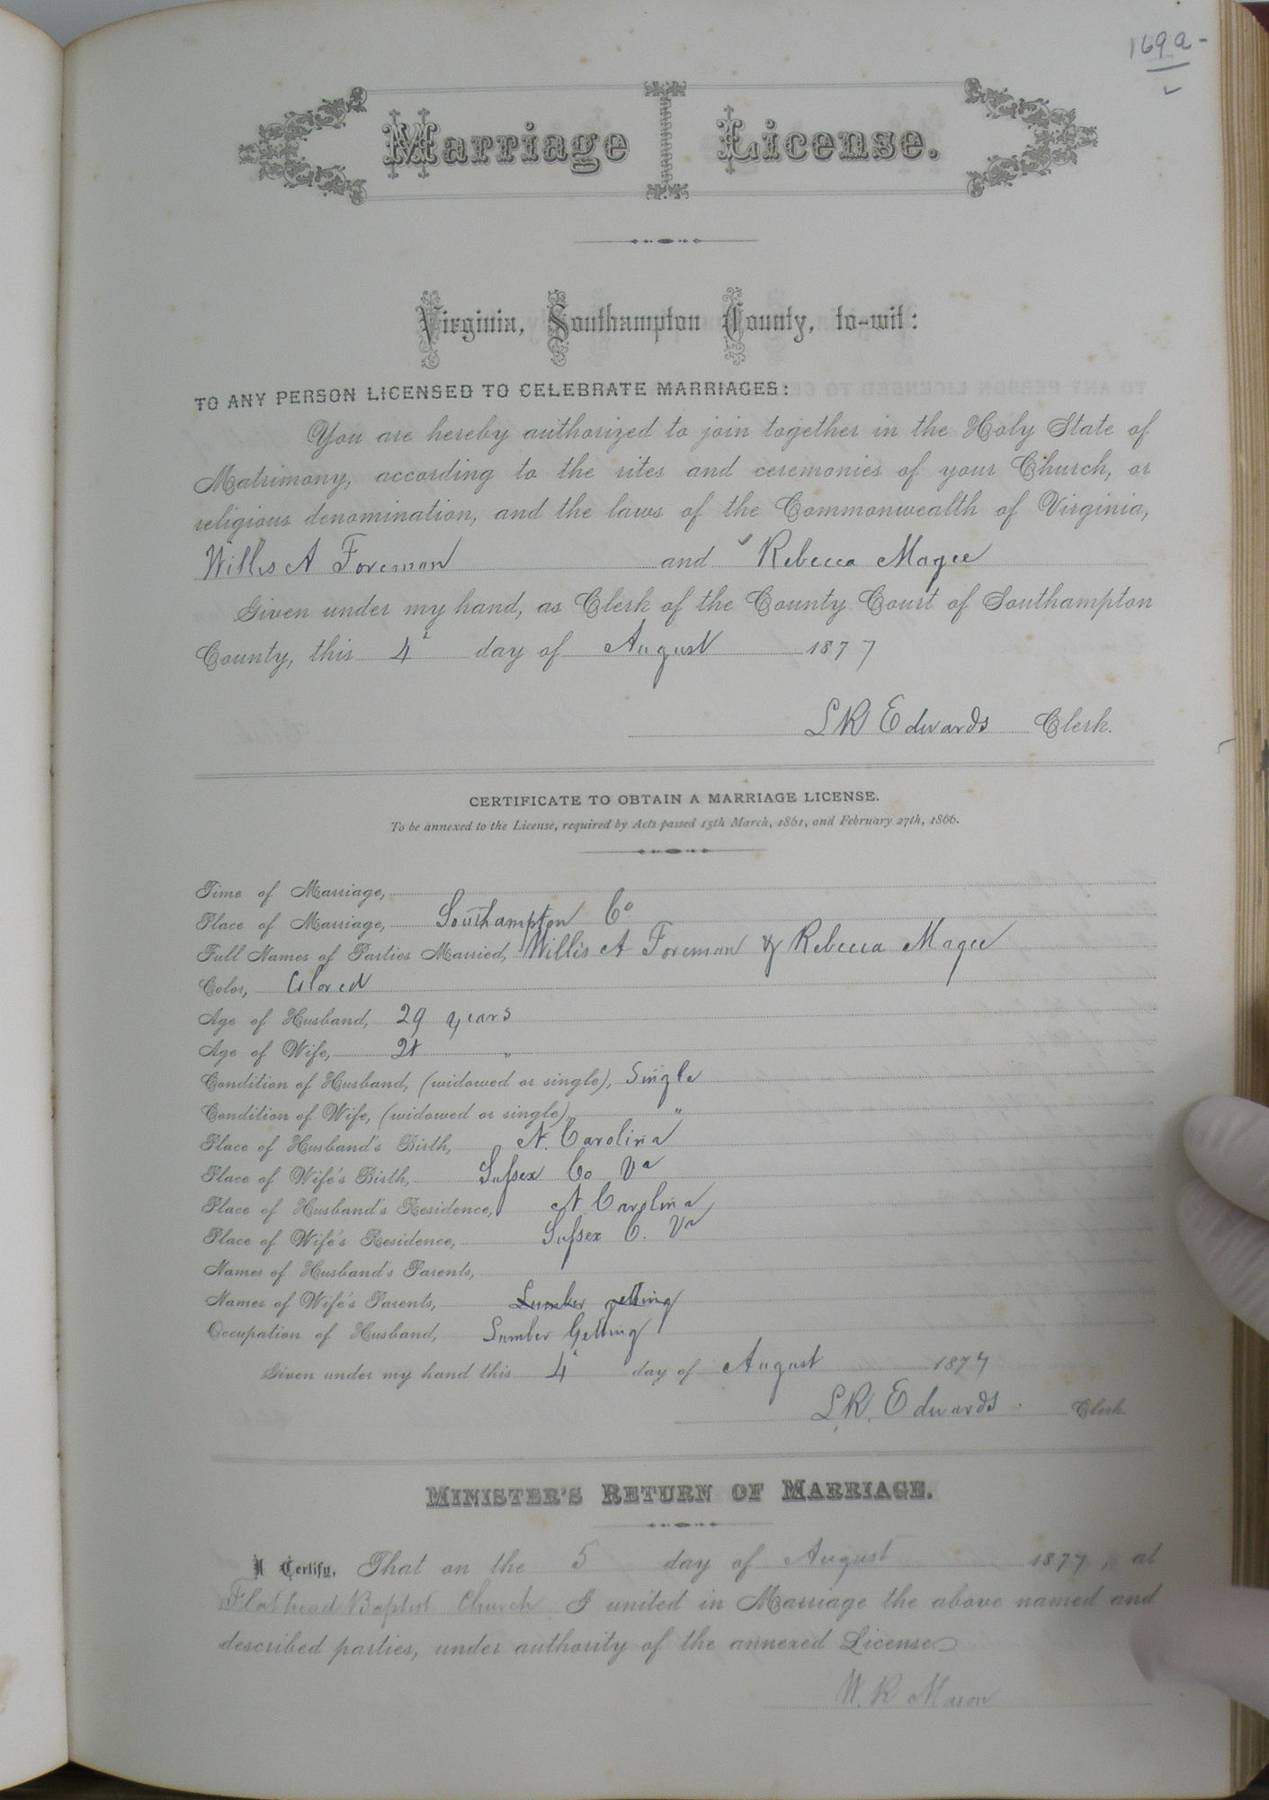 169a-
Marriage License.
Virginia, Southampton County, to-wit:
TO ANY PERSON LICENSED TO CELEBRATE MARRIAGES:
You are hereby authorized to join together in the Holy State of
Matrimony, according to the rites and ceremonies of your Church, or
religious denomination, and the laws of the Commonwealth of Virginia,
Willis A Foreman and Rebecca Magee
Given under my hand, as Clerk of the County Court of Southampton
County, this 4" day of August 1877
L R Edwards Clerk.
CERTIFICATE TO OBTAIN A MARRIAGE LICENSE.
To be annexed to the License, required by Acts passed 15th March, 1861, and February 27th, 1866.
Time of Marriage,
Place of Marriage, Southampton Co
Full Names of Parties Married, Willis A Foreman & Rebecca Magee
Color, Colored
Age of Husband, 29 years
Age of Wife, "
Condition of Husband, (widowed or single), Single
Condition of Wife, (widowed or single), "
Place of Husband's Birth, N. Carolina
Place of Wife's Birth, Sussex Co Va
Place of Husband's Residence, N. Carolina
Place of Wife's Residence, Sussex C. Va
Names of Husband's Parents,
Names of Wife's Parents, Lumber getting
Occupation of Husband, Lumber Getting
Given under my hand this 4" day of August 1877
L. R. Edwards. Clerk
MINISTER'S RETURN OF MARRIAGE.
I Certify, That on the 5 day of August 1877, at
Flathead Baptist Church I united in Marriage the above named and
described parties, under authority of the annexed License
W. R Mason